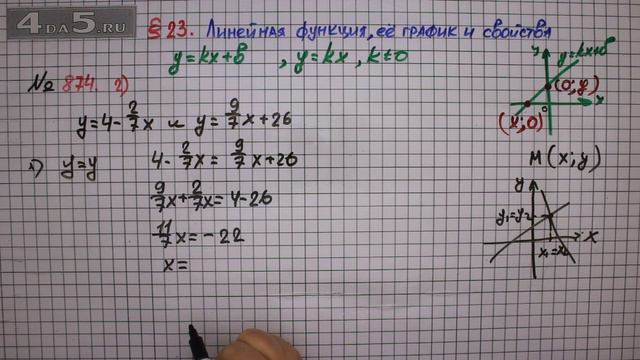 4DA5.RU
§23. Линейная функция, её график и свойства
y=kx+b , y=kx , k≠0
№ 874. 2)
y=4-2/7x и y=9/7x+26
1) y=y 4-2/7x=9/7x+26
9/7x+2/7x=4-26
11/7x=-22
x=
y
y=kx+b
(0;y)
0
x
(x;0)
M(x;y)
y
y₁=y₂
x
x₁=x₂